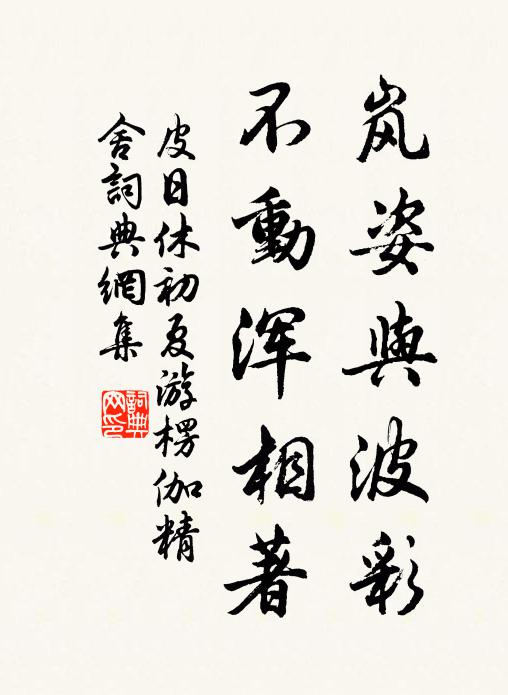 岚姿與波彩
不動浑相著
皮日休初夏游楞伽精
舍詞典網集
詞典
网印